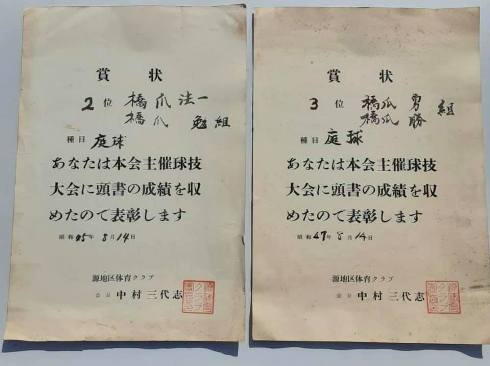 賞状
2位 橋爪 法一
橋爪 勉 組
種目 庭球
あなたは本会主催球技
大会に頭書の成績を収
めたので表彰します
昭和45年8月14日
源地区体育クラブ
会長 中村三代志
賞状
3位 橋爪 勇
橋爪 勝 組
種目 庭球
あなたは本会主催球技
大会に頭書の成績を収
めたので表彰します
昭和47年8月14日
源地区体育クラブ
会長 中村三代志